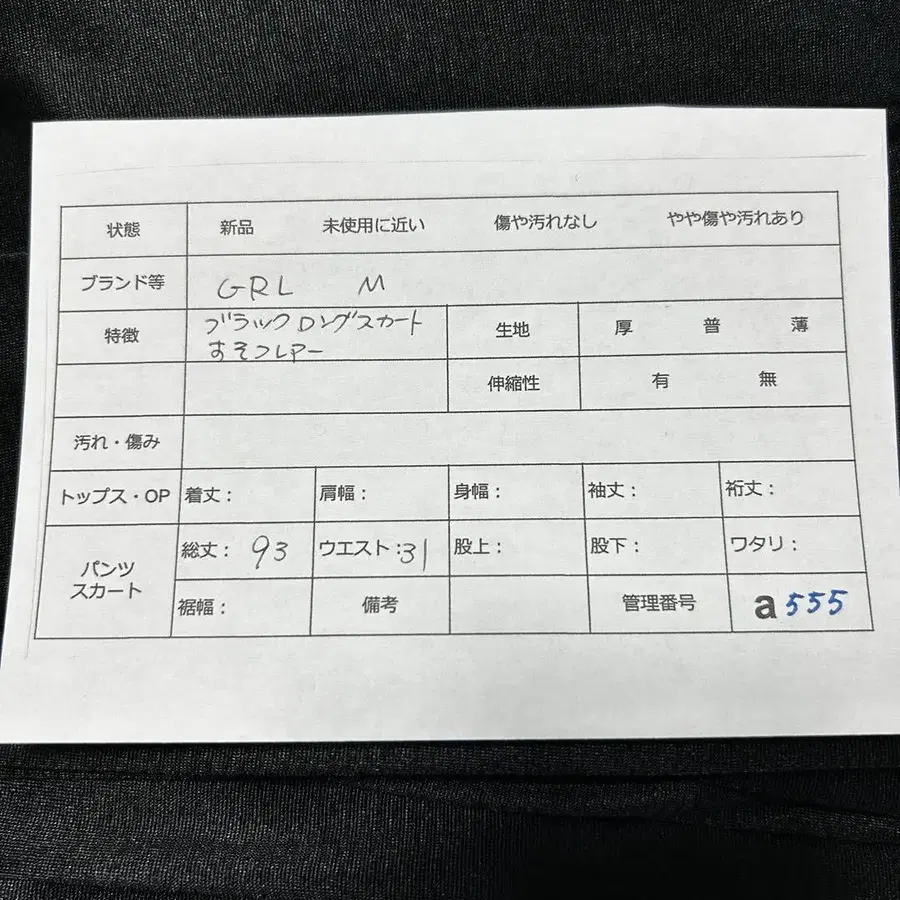 状態 新品 未使用に近い 傷や汚れなし やや傷や汚れあり
ブランド等 GRL M
特徴 ブラックロングスカート
すそフレアー
生地 厚 普 薄
伸縮性 有 無
汚れ・傷み
トップス・OP 着丈： 肩幅： 身幅： 袖丈： 裄丈：
パンツ
スカート
総丈： 93 ウエスト：31 股上： 股下： ワタリ：
裾幅： 備考 管理番号 a555